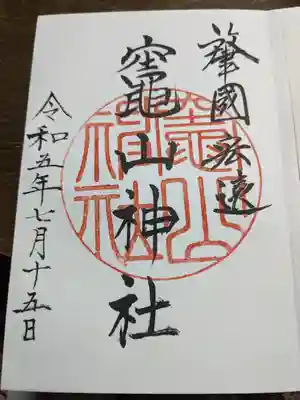 肇國宏遠
竈山神社
竈山
神社
令和五年七月十五日